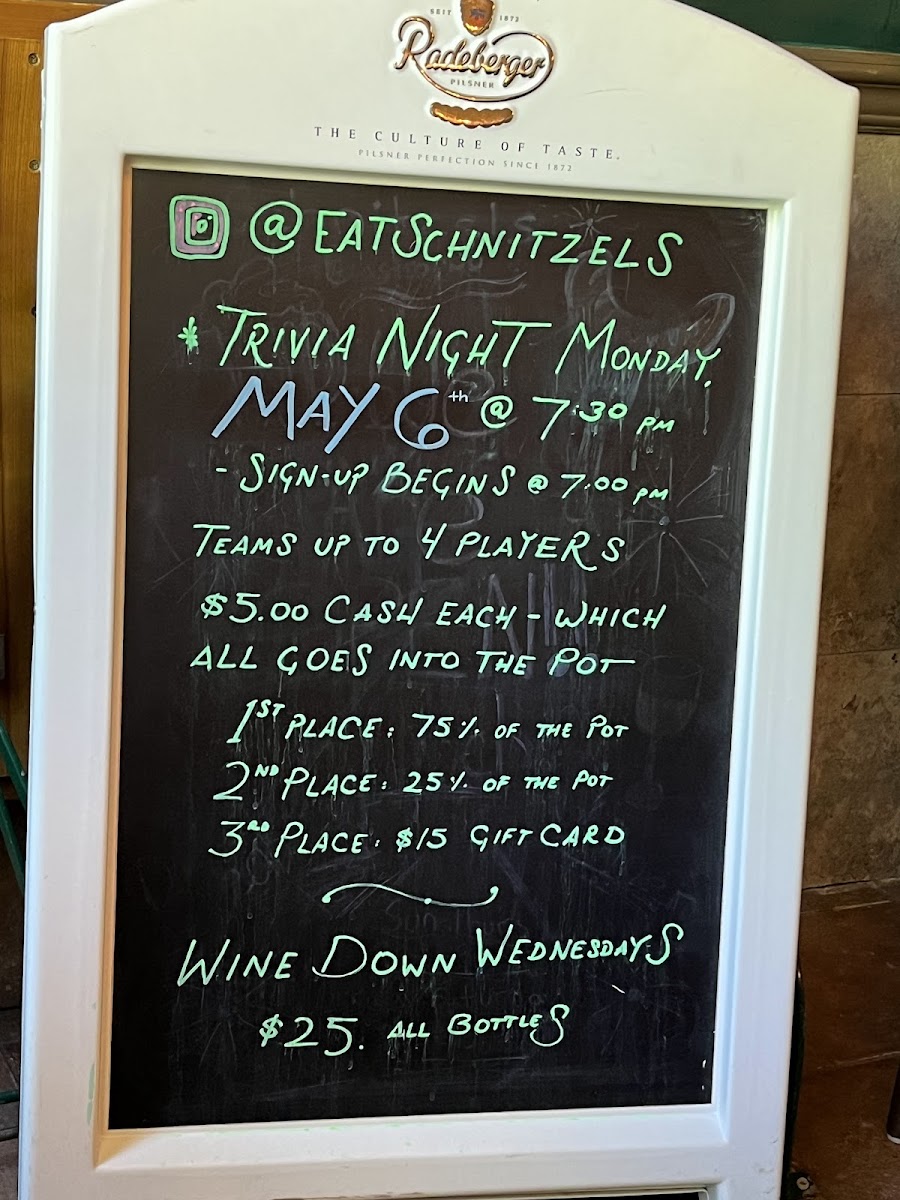 SEIT 1872
Radeberger
PILSNER
THE CULTURE OF TASTE.
PILSNER PERFECTION SINCE 1872
@EATSCHNITZELS
* TRIVIA NIGHT MONDAY.
MAY 6th @ 7:30 PM
- SIGN-UP BEGINS @ 7:00 PM
TEAMS UP TO 4 PLAYERS
$5.00 CASH EACH - WHICH
ALL GOES INTO THE POT
1ST PLACE: 75% OF THE POT
2ND PLACE: 25% OF THE POT
3RD PLACE: $15 GIFT CARD
WINE DOWN WEDNESDAYS
$25. ALL BOTTLES